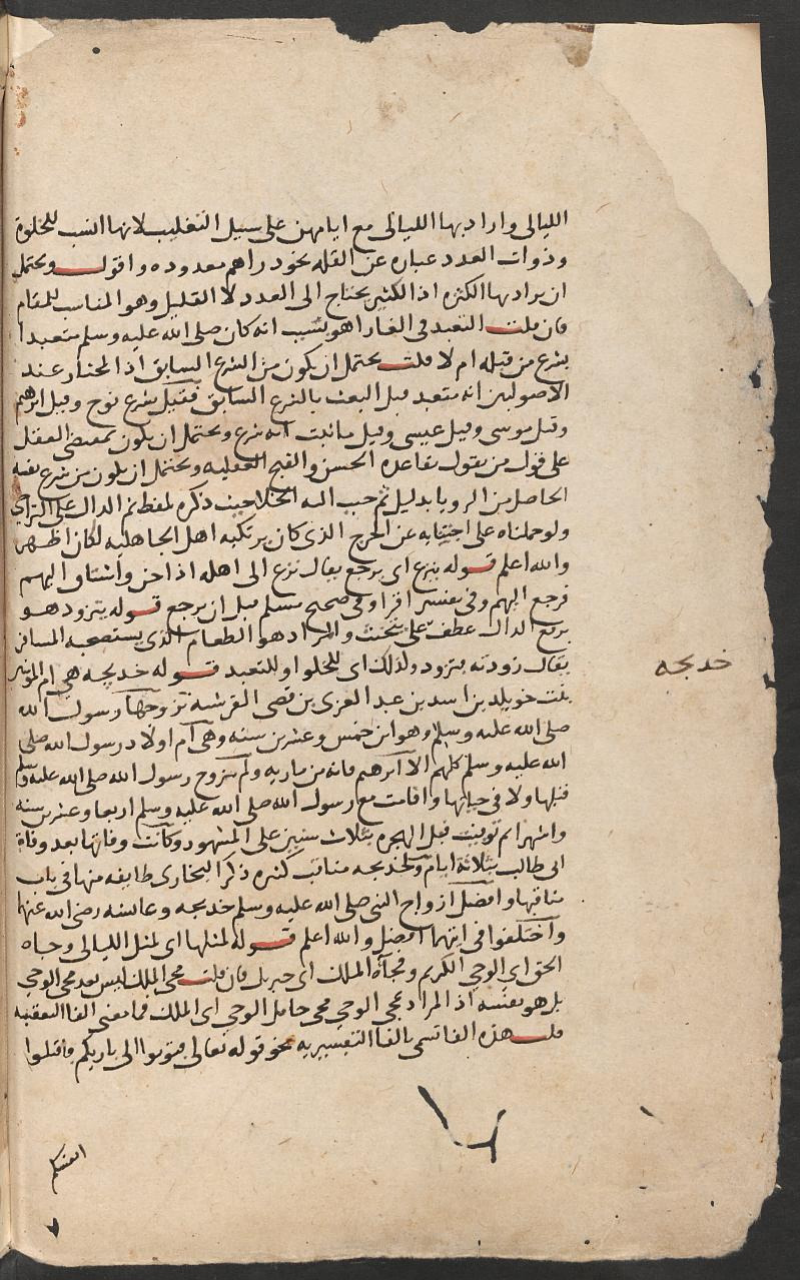 الليالى واراد بها الليالى مع ايامهن على سبيل التغليب لانها انسب للخلوة
وذوات العدد عبارة عن القلة نحو دراهم معدوده واقول ويحتمل
ان يراد بها الكثره اذ الكثير يحتاج الى العدد لا القليل وهو المناسب للمقام
فان قلت التعبد فى الغار اهو بسبب انه كان صلى الله عليه وسلم متعبدا
بشرع من قبله ام لا قلت يحتمل ان يكون من الشرع السابق اذ المختار عند
الاصولين انه متعبد قبل البعث بالشرع السابق فقيل بشرع نوح وقيل ابرهيم
وقيل موسى وقيل عيسى وقيل ماثبت انه شرع ويحتمل ان يكون بمقتضى العقل
على قول من يقول بقاعدة الحسن والقبح العقليه ويحتمل ان يكون من شرع نفسه
الحاصل من الرويا بدليل ثم حبب اليه الخلا حيث ذكره بلفظ ثم الدال على التراخي
ولو حملناه على اجتنابه عن الحرج الذى كان يرتكبه اهل الجاهليه لكان اظهر
والله اعلم قوله ينزع اى يرجع يقال نزع الى اهله اذا حن واشتاق اليهم
فرجع اليهم وفى تفسير اقرا وفى صحيح مسلم قبل ان يرجع قوله يتزود هو
برفع الدال عطف على يتحنث والمراد هو الطعام الذى يستصحبه المسافر
يقال زودته فتزود ولذلك اى للخلوا وللتعبد قوله خديجه هى ام المومنين
بنت خويلد بن اسد بن عبد العزى بن قصى القرشيه تزوجها رسول الله
صلى الله عليه وسلم وهو ابن خمس وعشرين سنه وهى ام اولاد رسول الله صلى
الله عليه وسلم كلهم الا ابرهيم فانه من ماريه ولم يتزوج رسول الله صلى الله عليه وسلم
قبلها ولا فى حياتها واقامت مع رسول الله صلى الله عليه وسلم اربعا وعشرين سنه
واشهرا ثم توفيت قبل الهجره بثلاث سنين على المشهور وكانت وفاتها بعد وفاة
ابى طالب بثلاثة ايام ولخديجه مناقب كثيره ذكر البخارى طايفه منها فى باب
مناقبها وافضل ازواج النبى صلى الله عليه وسلم خديجه وعائشه رضى الله عنهما
واختلفوا فى ايتهما افضل والله اعلم قوله لمثلها اى لمثل الليالى وجاه
الحق اى الوحى الكريم وفجأة الملك اى جبريل فان قلت مجى الملك ليس بعد مجى الوحى
بل هو نفسه اذ المراد بمجى الوحى مجى حامل الوحى اى الملك فما معنى الفا التعقيبيه
قلت هذه الفا تسمى بالفا التفسيريه نحو قوله تعالى فتوبوا الى باريكم فاقتلوا
خديجه
انفسكم